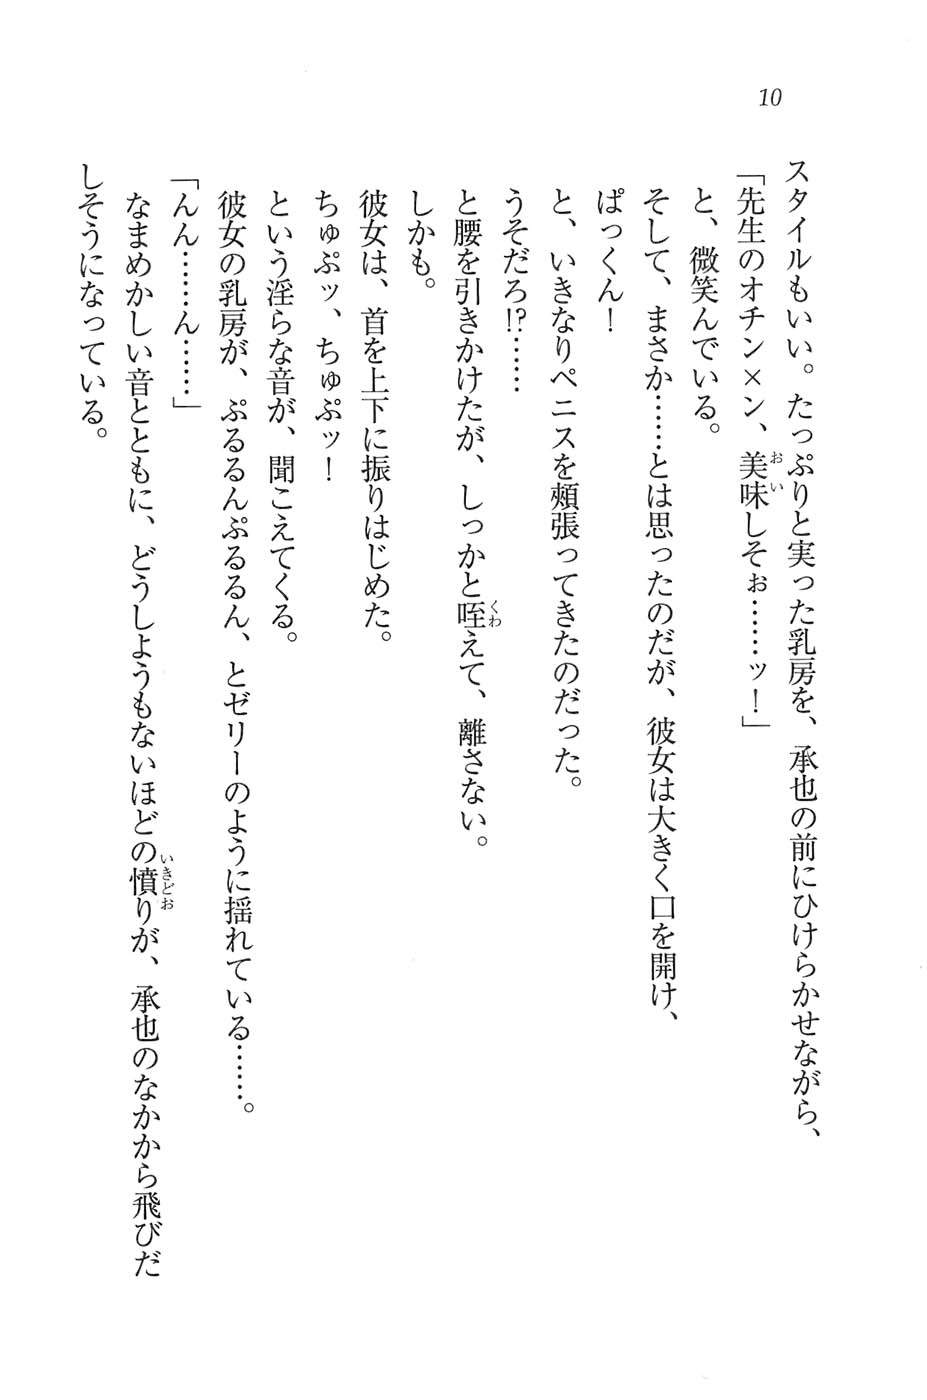 10
スタイルもいい。たっぷりと実った乳房を、承也の前にひけらかせながら、
「先生のオチン×ン、美味しそぉ……ッ！」
と、微笑んでいる。
そして、まさか……とは思ったのだが、彼女は大きく口を開け、
ぱっくん！
と、いきなりペニスを頰張ってきたのだった。
うそだろ!?……
と腰を引きかけたが、しっかと咥えて、離さない。
しかも。
彼女は、首を上下に振りはじめた。
ちゅぷッ、ちゅぷッ！
という淫らな音が、聞こえてくる。
彼女の乳房が、ぷるるんぷるるん、とゼリーのように揺れている……。
「んん……ん……」
なまめかしい音とともに、どうしようもないほどの憤りが、承也のなかから飛びだ
しそうになっている。